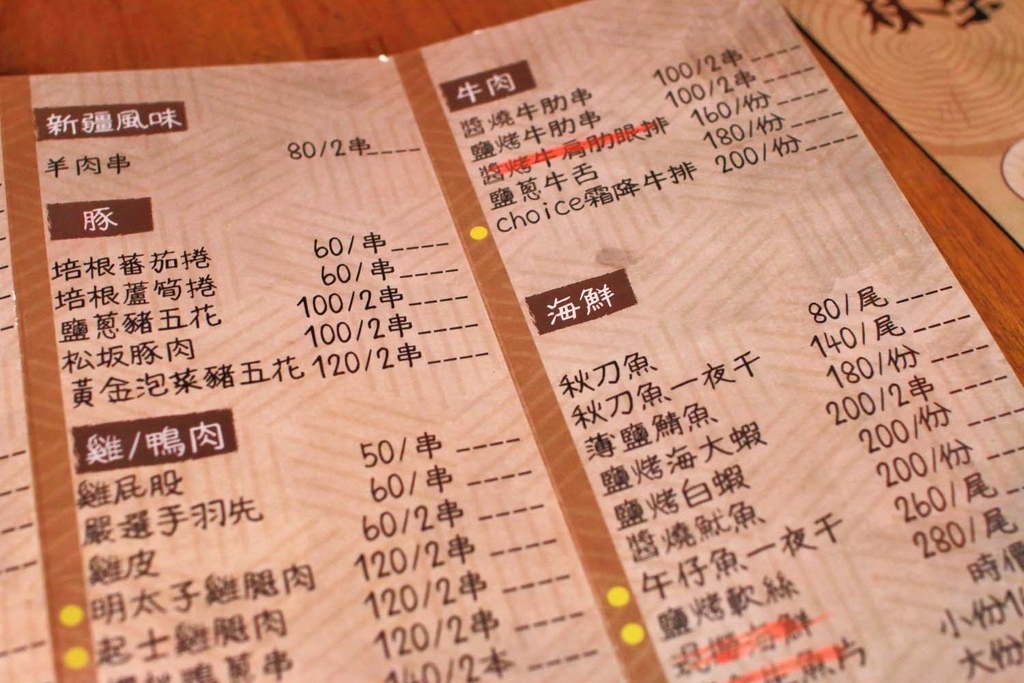 新疆風味
羊肉串 80/2串____
豚
培根蕃茄捲 60/串____
培根蘆筍捲 60/串____
鹽蔥豬五花 100/2串____
松坂豚肉 100/2串____
黃金泡菜豬五花 120/2串____
雞/鴨肉
雞屁股 50/串____
嚴選手羽先 60/串____
雞皮 60/2串____
明太子雞腿肉 120/2串____
起士雞腿肉 120/2串____
鴨蔥串 120/2串____
140/2本
牛肉
醬燒牛肋串 100/2串____
鹽烤牛肋串 100/2串____
醬烤牛肩肋眼排 160/份____
鹽蔥牛舌 180/份____
choice霜降牛排 200/份____
海鮮
秋刀魚 80/尾____
秋刀魚一夜干 140/尾____
薄鹽鯖魚 180/份____
鹽烤海大蝦 200/2串____
鹽烤白蝦 200/份____
醬燒魷魚 200/份____
午仔魚一夜干 260/尾____
鹽烤軟絲 280/尾
海鮮 時價
魚片 小份
大份